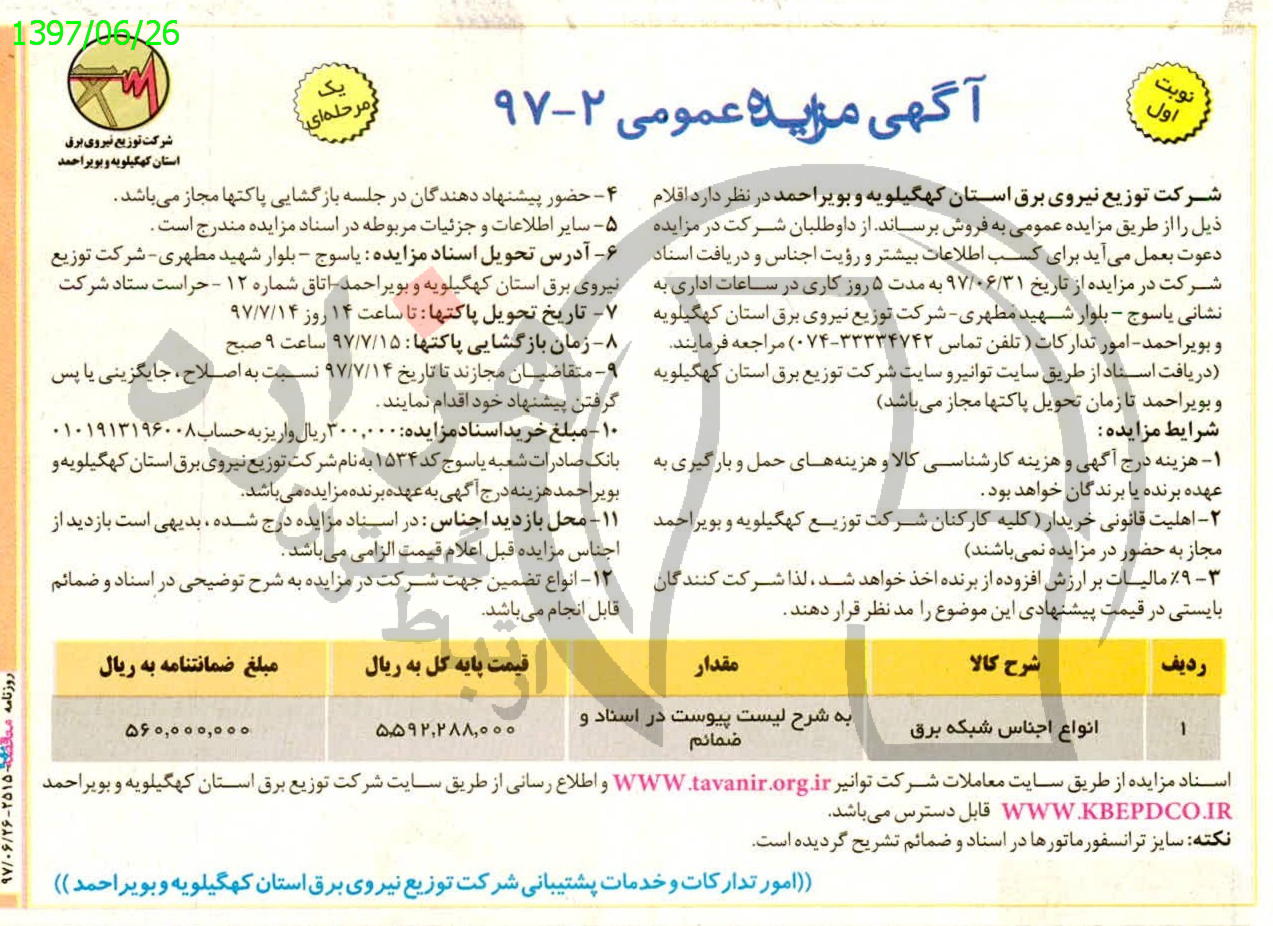 1397/06/26
نوبت
اول
آگهی مزایده عمومی ۲-۹۷
یک
مرحله‌ای
شرکت توزیع نیروی برق
استان کهگیلویه و بویراحمد
شرکت توزیع نیروی برق استان کهگیلویه و بویراحمد در نظر دارد اقلام
ذیل را از طریق مزایده عمومی به فروش برساند. از داوطلبان شرکت در مزایده
دعوت بعمل می‌آید برای کسب اطلاعات بیشتر و رؤیت اجناس و دریافت اسناد
شرکت در مزایده از تاریخ ۹۷/۰۶/۳۱ به مدت ۵ روز کاری در ساعات اداری به
نشانی یاسوج – بلوار شهید مطهری - شرکت توزیع نیروی برق استان کهگیلویه
و بویراحمد- امور تدارکات ( تلفن تماس ۳۳۳۳۴۷۴۲-۰۷۴) مراجعه فرمایند.
(دریافت اسناد از طریق سایت توانیر و سایت شرکت توزیع برق استان کهگیلویه
و بویراحمد تا زمان تحویل پاکتها مجاز می‌باشد)
شرایط مزایده :
۱- هزینه درج آگهی و هزینه کارشناسی کالا و هزینه‌های حمل و بارگیری به
عهده برنده یا برندگان خواهد بود .
۲- اهلیت قانونی خریدار ( کلیه کارکنان شرکت توزیع کهگیلویه و بویراحمد
مجاز به حضور در مزایده نمی‌باشند)
۳- ۹٪ مالیات بر ارزش افزوده از برنده اخذ خواهد شد ، لذا شرکت کنندگان
بایستی در قیمت پیشنهادی این موضوع را مد نظر قرار دهند .
۴- حضور پیشنهاد دهندگان در جلسه بازگشایی پاکتها مجاز می‌باشد .
۵- سایر اطلاعات و جزئیات مربوطه در اسناد مزایده مندرج است .
۶- آدرس تحویل اسناد مزایده : یاسوج – بلوار شهید مطهری - شرکت توزیع
نیروی برق استان کهگیلویه و بویراحمد-اتاق شماره ۱۲ - حراست ستاد شرکت
۷- تاریخ تحویل پاکتها : تا ساعت ۱۴ روز ۹۷/۷/۱۴
۸- زمان بازگشایی پاکتها : ۹۷/۷/۱۵ ساعت ۹ صبح
۹- متقاضیان مجازند تا تاریخ ۹۷/۷/۱۴ نسبت به اصلاح ، جایگزینی یا پس
گرفتن پیشنهاد خود اقدام نمایند .
۱۰- مبلغ خرید اسناد مزایده: ۳۰۰,۰۰۰ ریال واریز به حساب ۰۱۰۱۹۱۳۱۹۶۰۰۸
بانک صادرات شعبه یاسوج کد ۱۵۳۴ به نام شرکت توزیع نیروی برق استان کهگیلویه و
بویراحمد هزینه درج آگهی به عهده برنده مزایده می‌باشد.
۱۱- محل بازدید اجناس : در اسناد مزایده درج شده ، بدیهی است بازدید از
اجناس مزایده قبل اعلام قیمت الزامی می‌باشد .
۱۲- انواع تضمین جهت شرکت در مزایده به شرح توضیحی در اسناد و ضمائم
قابل انجام می‌باشد.
ردیف شرح کالا مقدار قیمت پایه کل به ریال مبلغ ضمانتنامه به ریال
۱ انواع اجناس شبکه برق به شرح لیست پیوست در اسناد و ضمائم ۵,۵۹۲,۲۸۸,۰۰۰ ۵۶۰,۰۰۰,۰۰۰
اسناد مزایده از طریق سایت معاملات شرکت توانیر WWW.tavanir.org.ir و اطلاع رسانی از طریق سایت شرکت توزیع برق استان کهگیلویه و بویراحمد
WWW.KBEPDCO.IR قابل دسترس می‌باشد.
نکته: سایز ترانسفورماتورها در اسناد و ضمائم تشریح گردیده است.
((امور تدارکات و خدمات پشتیبانی شرکت توزیع نیروی برق استان کهگیلویه و بویراحمد ))
هزاره
گستران
ارتباط
روزنامه ۲۵۱۵-۹۷/۰۶/۲۶